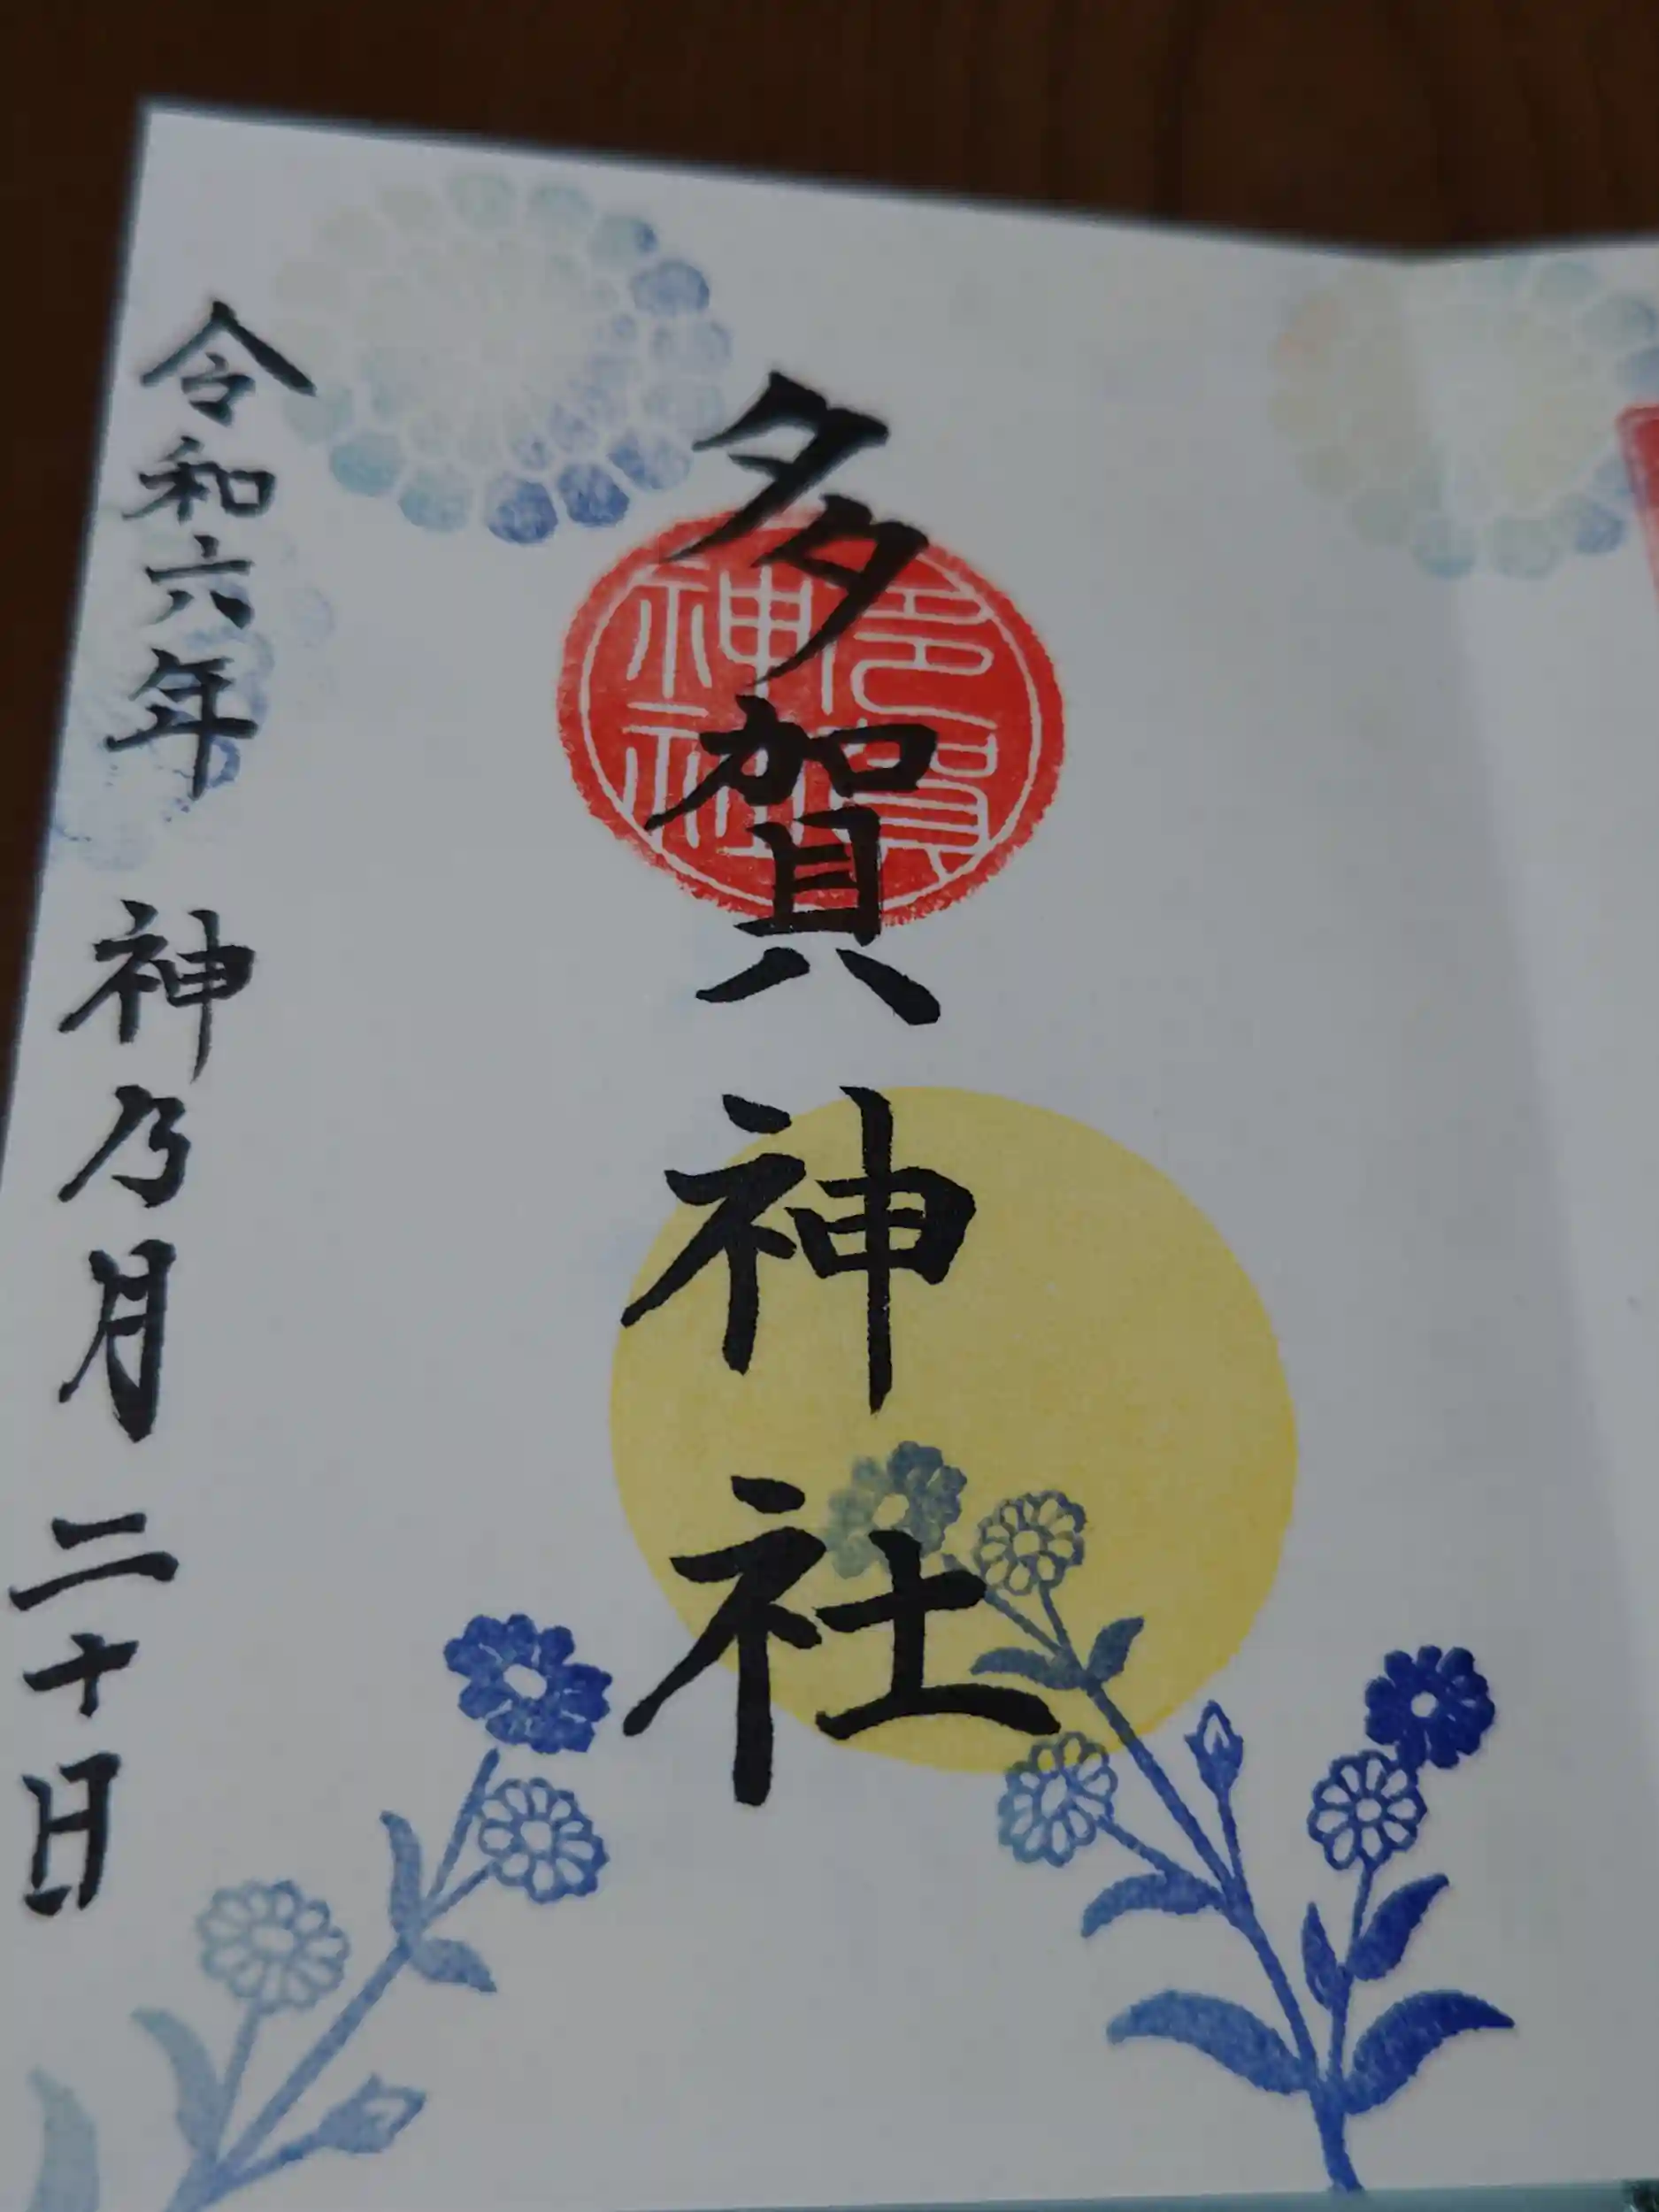 多賀神社
多賀
神社
令和六年 神乃月 二十日